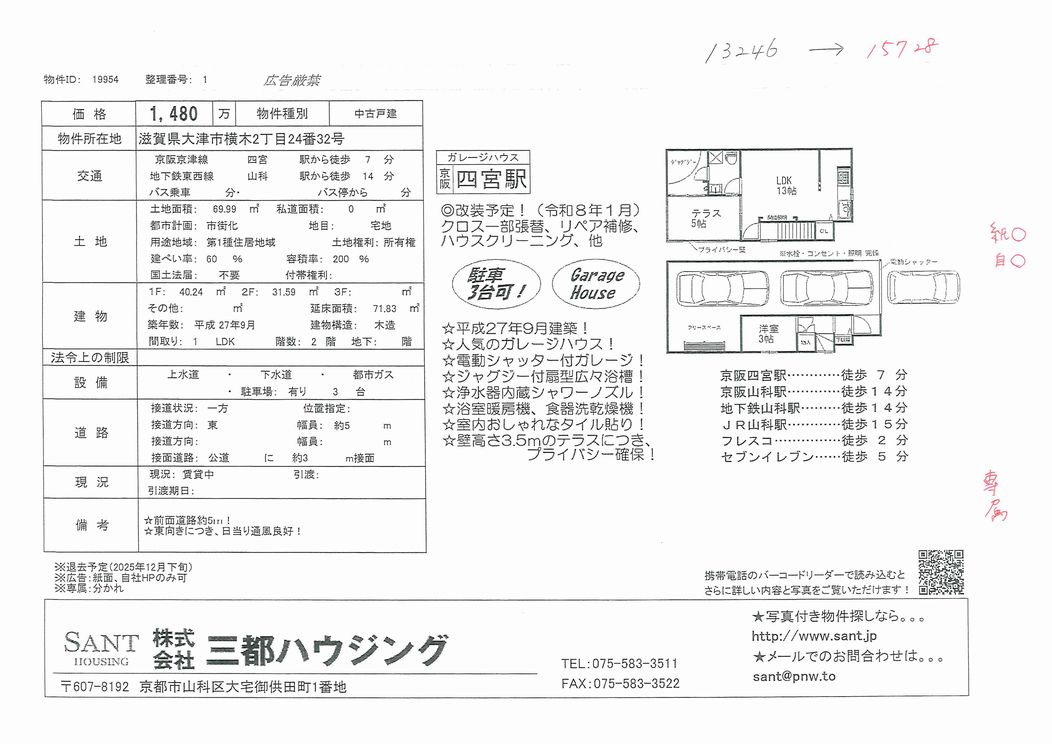 13246 → 15728
物件ID: 19954 整理番号: 1 広告厳禁
価格 1,480 万 物件種別 中古戸建
物件所在地 滋賀県大津市横木2丁目24番32号
交通 京阪京津線 四宮 駅から徒歩 7 分
地下鉄東西線 山科 駅から徒歩 14 分
バス乗車 分・ バス停から 分
土地 土地面積: 69.99 ㎡ 私道面積: 0 ㎡
都市計画: 市街化 地目: 宅地
用途地域: 第1種住居地域 土地権利: 所有権
建ぺい率: 60 % 容積率: 200 %
国土法届: 不要 付帯権利:
建物 1F: 40.24 ㎡ 2F: 31.59 ㎡ 3F: ㎡
その他: ㎡ 延床面積: 71.83 ㎡
築年数: 平成 27年9月 建物構造: 木造
間取り: 1 LDK 階数: 2 階 地下: 階
法令上の制限
設備 上水道 ・ 下水道 ・ 都市ガス
・ 駐車場: 有り 3 台
道路 接道状況: 一方 位置指定:
接道方向: 東 幅員: 約5 m
接道方向: 幅員: m
接面道路: 公道 に 約3 m接面
現況 現況: 賃貸中 引渡:
引渡期日:
備考 ☆前面道路約5m!
☆東向きにつき、日当り通風良好!
※退去予定(2025年12月下旬)
※広告:紙面、自社HPのみ可
※専属:分かれ
ガレージハウス
京阪 四宮駅
◎改装予定!(令和8年1月)
クロス一部張替、リペア補修、
ハウスクリーニング、他
駐車
3台可!
Garage
House
☆平成27年9月建築!
☆人気のガレージハウス!
☆電動シャッター付ガレージ!
☆ジャグジー付扇型広々浴槽!
☆浄水器内蔵シャワーノズル!
☆浴室暖房機、食器洗乾燥機!
☆室内おしゃれなタイル貼り!
☆壁高さ3.5mのテラスにつき、
プライバシー確保!
ジャグジー
LDK
13帖
テラス
5帖
CL
プライバシー壁
※水栓・コンセント・照明 完備
電動シャッター
フリースペース
洋室
3帖
物入
紙○
自○
京阪四宮駅…………徒歩 7 分
京阪山科駅…………徒歩14分
地下鉄山科駅………徒歩14分
JR山科駅…………徒歩15分
フレスコ……………徒歩 2 分
セブンイレブン……徒歩 5 分
専属
携帯電話のバーコードリーダーで読み込むと
さらに詳しい内容と写真をご覧いただけます!
SANT
HOUSING
株式会社 三都ハウジング
〒607-8192 京都市山科区大宅御供田町1番地
TEL:075-583-3511
FAX:075-583-3522
★写真付き物件探しなら。。。
http://www.sant.jp
★メールでのお問合わせは。。。
sant@pnw.to